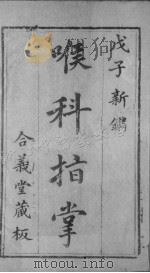 戊子新鐫
喉科指掌
合義堂藏板
www.mtoou.info